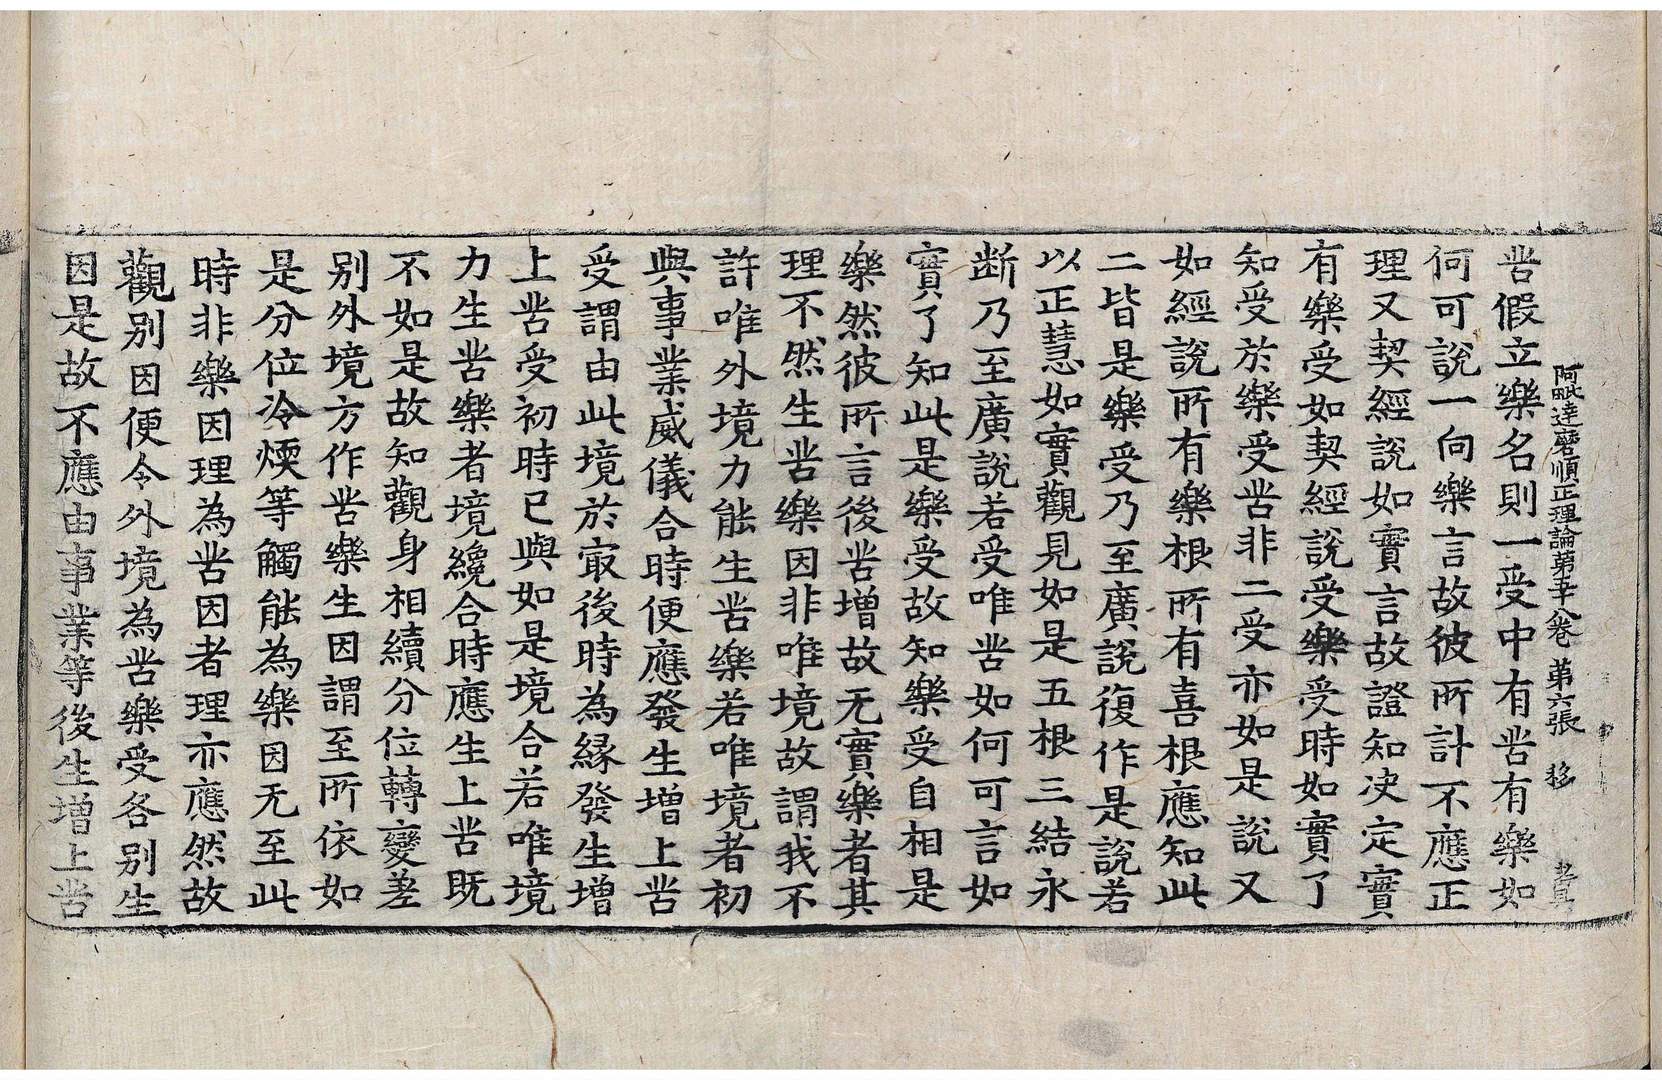 阿毗達磨順正理論第五十八卷 第六張 移
苦假立樂名則一受中有苦有樂如
何可說一向樂言故彼所計不應正
理又契經說如實言故證知决定實
有樂受如契經說受樂受時如實了
知受於樂受苦非二受亦如是說又
如經說所有樂根所有喜根應知此
二皆是樂受乃至廣說復作是說若
以正慧如實觀見如是五根三結永
断乃至廣說若受唯苦如何可言如
實了知此是樂受故知樂受自相是
樂然彼所言後苦增故无實樂者其
理不然生苦樂因非唯境故謂我不
許唯外境力能生苦樂若唯境者初
與事業威儀合時便應發生增上苦
受謂由此境於㝡後時為緣發生增
上苦受初時已與如是境合若唯境
力生苦樂者境纔合時應生上苦既
不如是故知觀身相續分位轉變差
别外境方作苦樂生因謂至所依如
是分位冷煗等觸能為樂因无至此
時非樂因理為苦因者理亦應然故
觀别因便令外境為苦樂受各别生
因是故不應由事業等後生增上苦